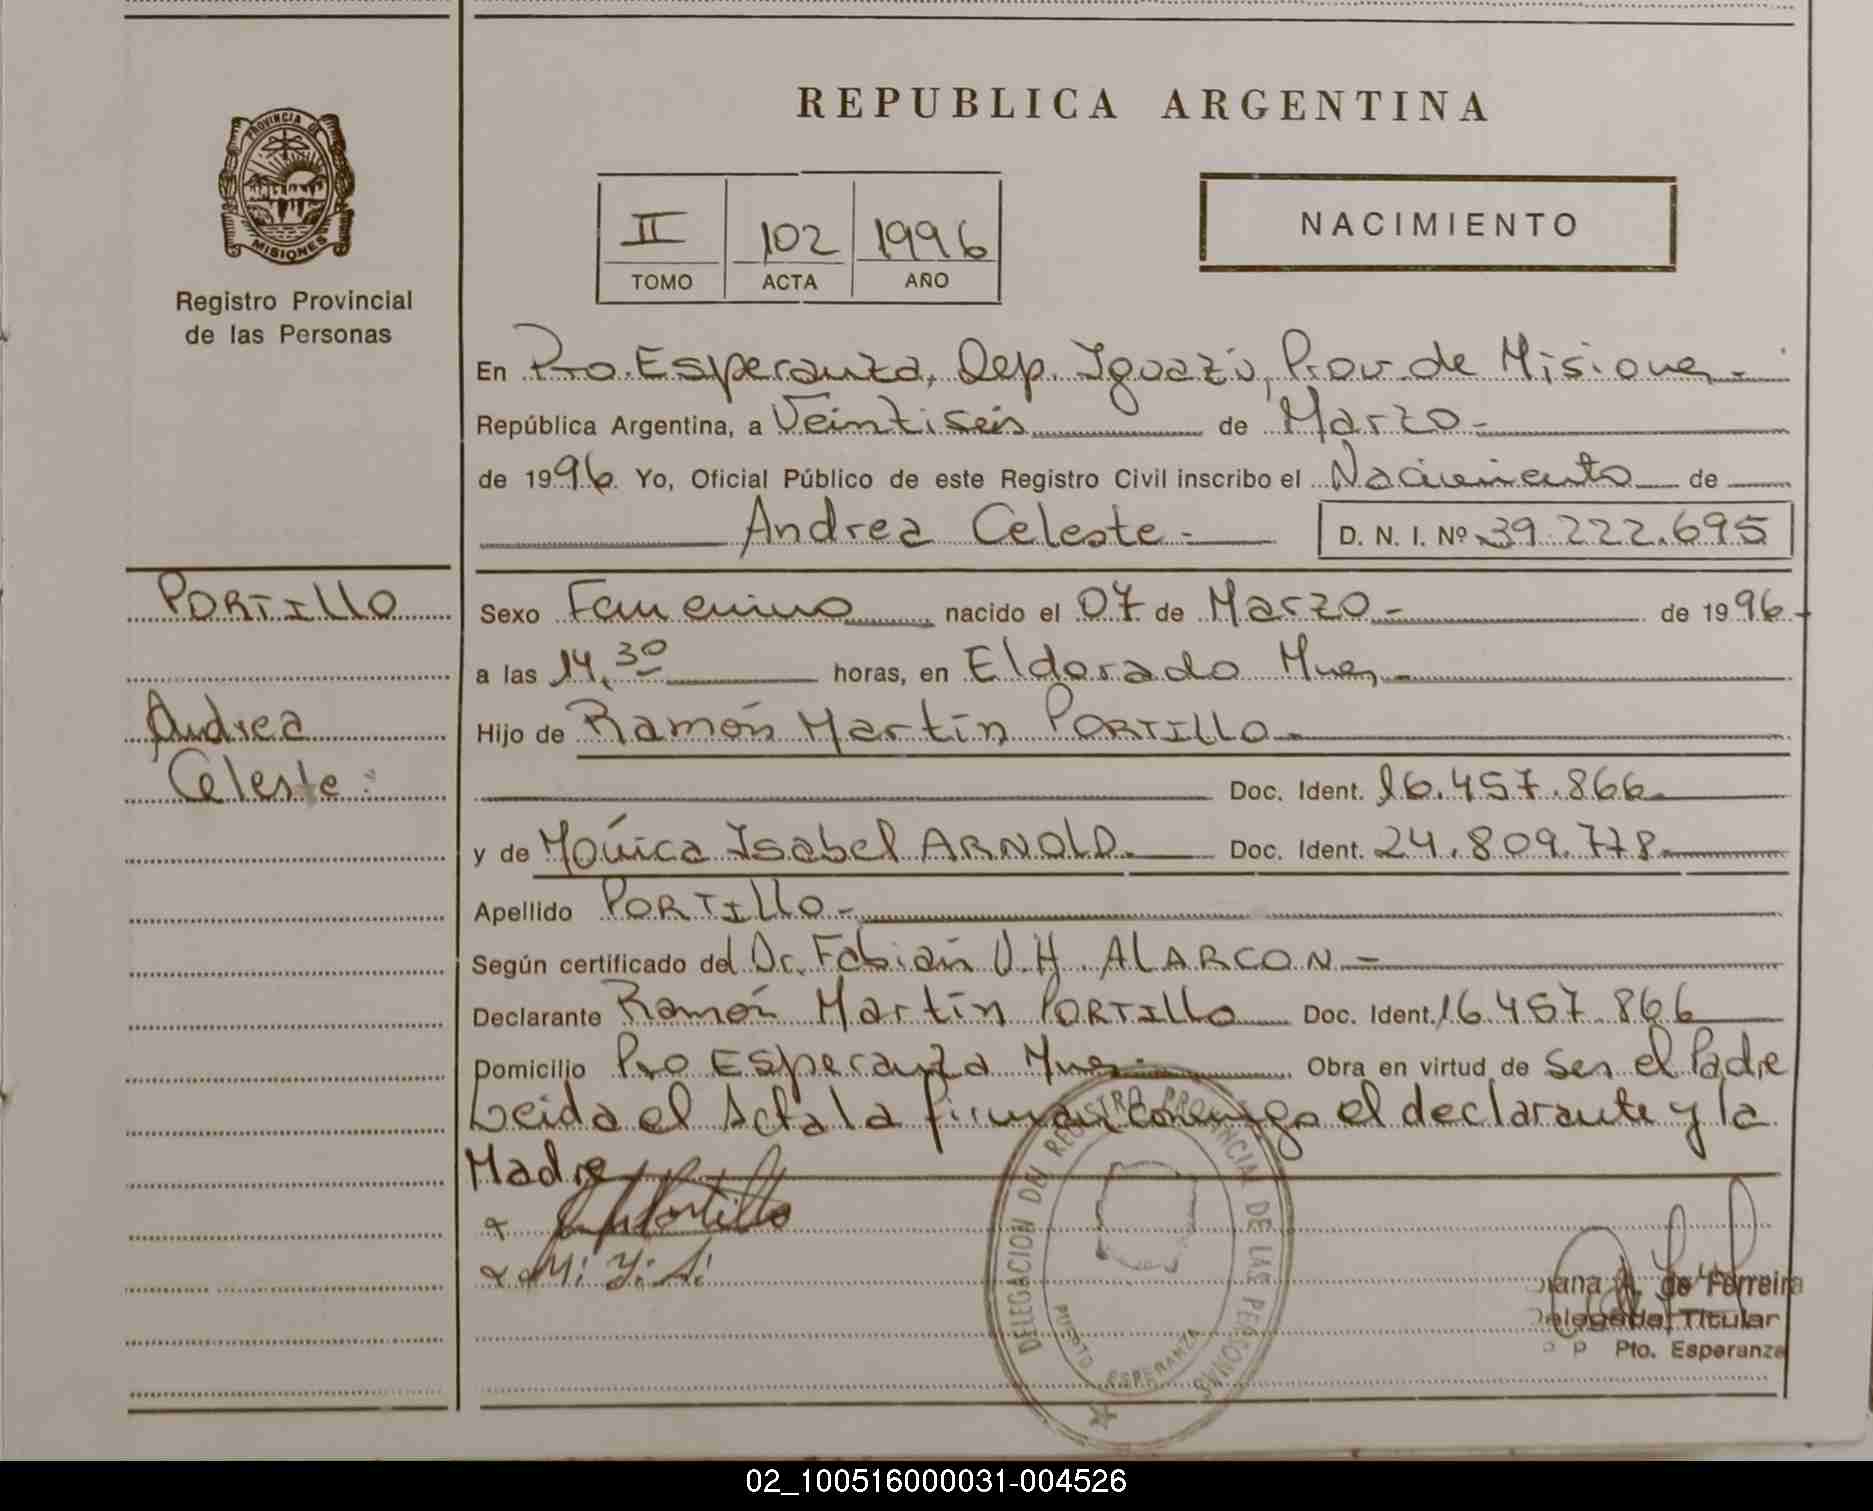 REPUBLICA ARGENTINA
PROVINCIA DE
MISIONES
Registro Provincial
de las Personas
II 102 1996
TOMO ACTA AÑO
NACIMIENTO
En Pto. Esperanza, Dep. Iguazú, Prov. de Misiones.-
República Argentina, a Veintiseis de Marzo.-
de 1996. Yo, Oficial Público de este Registro Civil inscribo el Nacimiento de
Andrea Celeste.- D. N. I. Nº 39.222.695
PORTILLO
Andrea
Celeste.
Sexo Femenino nacido el 07 de Marzo.- de 1996.-
a las 14,30 horas, en Eldorado Mnes.-
Hijo de Ramón Martín PORTILLO.-
Doc. Ident. 16.457.866.
y de Mónica Isabel ARNOLD.- Doc. Ident. 24.809.778.
Apellido PORTILLO.-
Según certificado del Dr. Fabián V.H. ALARCON.-
Declarante Ramón Martín PORTILLO Doc. Ident. 16.457.866
Domicilio Pto Esperanza Mnes.- Obra en virtud de ser el Padre
Leida el Acta la firman conmigo el declarante y la
Madre
Portillo
M. Y. A.
DELEGACION DEL REGISTRO PROVINCIAL DE LAS PERSONAS
PUERTO ESPERANZA
A. de Ferreira
Delegada Titular
Pto. Esperanza
02_100516000031-004526